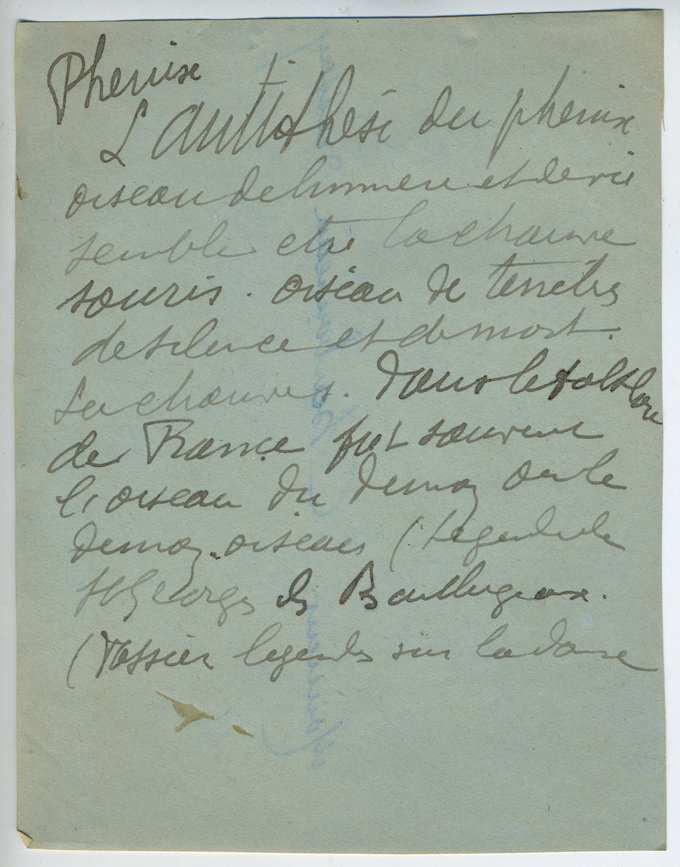 Phenix
L'antithèse du phenix
oiseau de lumiere et de vie
semble etre la chauve
souris. oiseau de tenebres
de silence et de mort.
La chauves. dans le folklore
de France fut souvent
l'oiseau du demon ou le
demon oiseau (Legende de
St Georges de
(Dossier legendes sur la danse